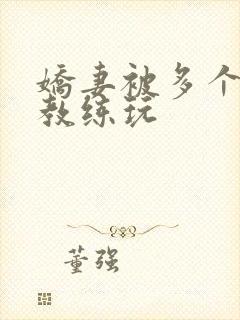 嬌妻被多个
教练玩
董强